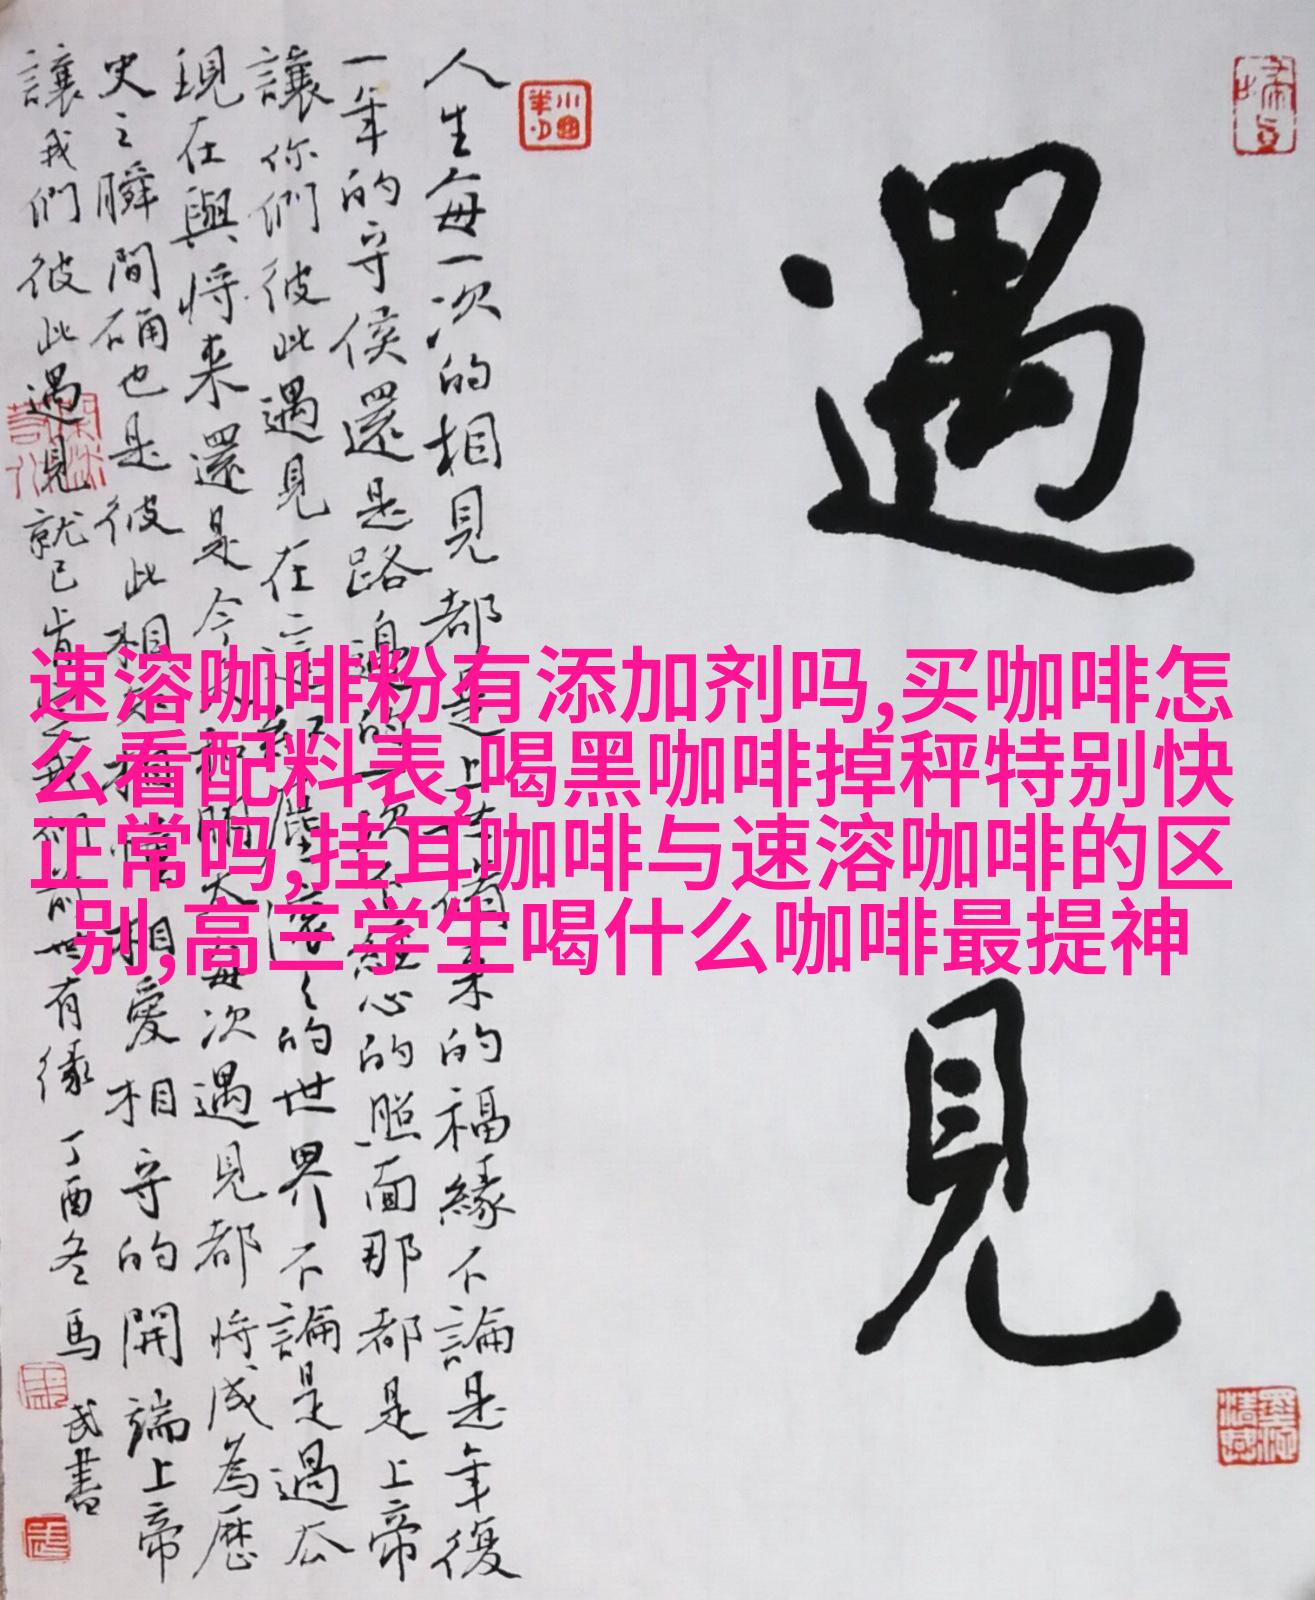 遇見
人生每一次的相見都是上
的福緣不論是年復
一年的守侯還是路邊的一次不經心的照面那都是上帝
讓你們彼此遇見在這紅塵滾之的世界不論是過去
現在與將来還是今
明天每次遇見都將成為歷
史之瞬間确也是彼此相
相愛相守的開端上帝
讓我們彼此遇見就已肯
我們前世有缘
丁酉冬馬武書
速溶咖啡粉有添加剂吗,买咖啡怎
么看配料表,喝黑咖啡掉秤特别快
正常吗,挂耳咖啡与速溶咖啡的区
别,高三学生喝什么咖啡最提神